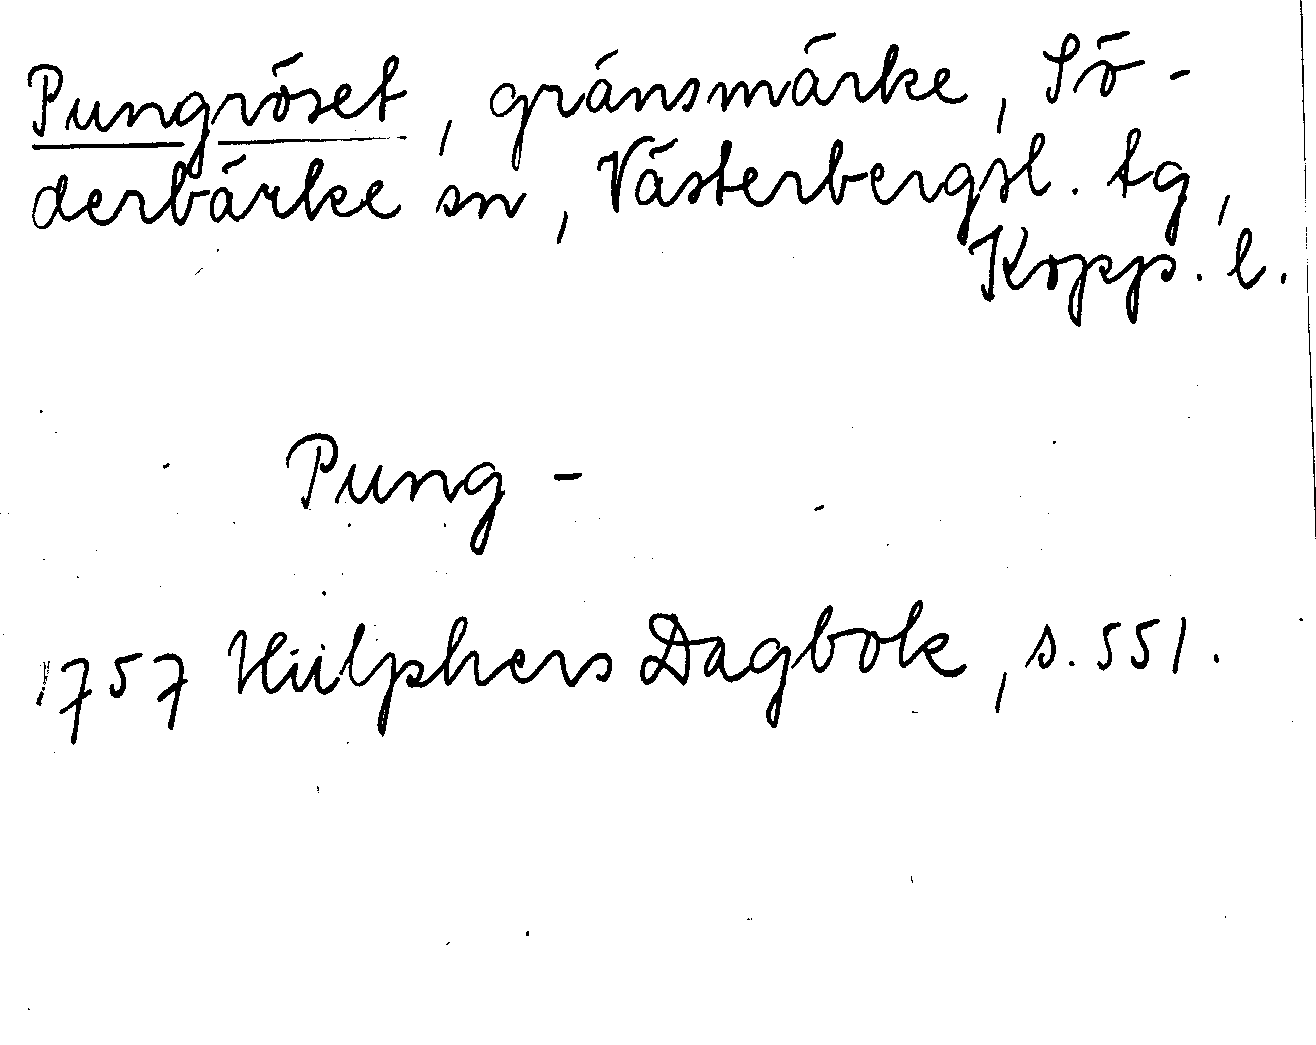 Pungröset, gränsmärke, Sö-
derbärke sn, Västerbergsl. tg,
Kopp. l.
Pung -
1757 Hülphers Dagbok, s. 551.